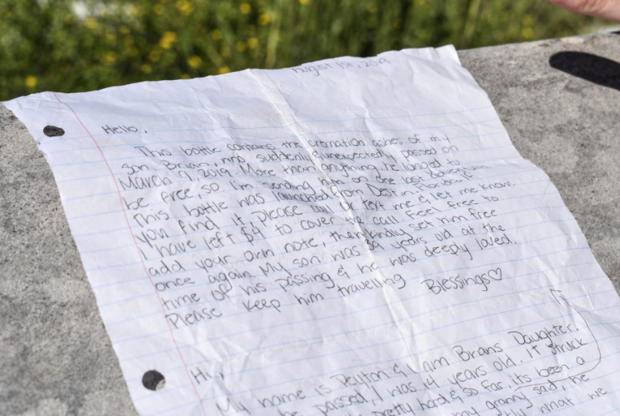 August 16, 2019
Hello,
This bottle contains the cremation ashes of my
son, Brian, who suddenly & unexpectedly passed on
March 9, 2019. More than anything he longed to
be free, so I'm sending him on one last adventure.
This bottle was launched from Destin, Florida. If
you find it, please call or text me & let me know.
I have left $4 to cover the call. Feel free to
add your own note, then kindly set him free
once again. My son was 39 years old at the
time of his passing & he was deeply loved.
Please keep him traveling
Blessings♡
Hi,
My name is Peyton & I am Brians Daughter.
he passed, I was 14 years old. It struck
pretty hard & so far, its been a
granny sad, he
that we